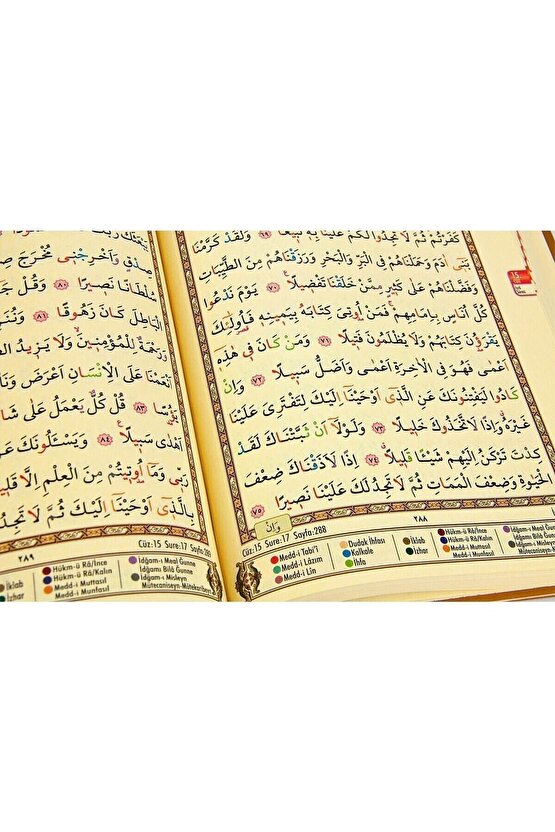 كَفَرْتُمْ ثُمَّ لَا تَجِدُوا لَكُمْ عَلَيْنَا بِه۪ تَب۪يعًا ﴿٦٩﴾ وَلَقَدْ كَرَّمْنَا
بَن۪ٓي اٰدَمَ وَحَمَلْنَاهُمْ فِي الْبَرِّ وَالْبَحْرِ وَرَزَقْنَاهُمْ مِنَ الطَّيِّبَاتِ
وَفَضَّلْنَاهُمْ عَلٰى كَث۪يرٍ مِمَّنْ خَلَقْنَا تَفْض۪يلًا۟ ﴿٧٠﴾ يَوْمَ نَدْعُوا
كُلَّ اُنَاسٍ بِاِمَامِهِمْۚ فَمَنْ اُو۫تِيَ كِتَابَهُ بِيَم۪ينِه۪ فَاُو۬لٰٓئِكَ
يَقْرَؤُ۫نَ كِتَابَهُمْ وَلَا يُظْلَمُونَ فَت۪يلًا ﴿٧١﴾ وَمَنْ كَانَ ف۪ي هٰذِه۪ٓ
اَعْمٰى فَهُوَ فِي الْاٰخِرَةِ اَعْمٰى وَاَضَلُّ سَب۪يلًا ﴿٧٢﴾ وَاِنْ
كَادُوا لَيَفْتِنُونَكَ عَنِ الَّذ۪ٓي اَوْحَيْنَٓا اِلَيْكَ لِتَفْتَرِيَ عَلَيْنَا
غَيْرَهُۗ وَاِذًا لَاتَّخَذُوكَ خَل۪يلًا ﴿٧٣﴾ وَلَوْلَٓا اَنْ ثَبَّتْنَاكَ لَقَدْ
كِدْتَ تَرْكَنُ اِلَيْهِمْ شَيْـًٔا قَل۪يلًاۗ ﴿٧٤﴾ اِذًا لَاَذَقْنَاكَ ضِعْفَ
الْحَيٰوةِ وَضِعْفَ الْمَمَاتِ ثُمَّ لَا تَجِدُ لَكَ عَلَيْنَا نَص۪يرًا ﴿٧٥﴾
وَاِنْ
٢٨٨
Cüz:15 Sure:17 Sayfa:288
Medd-i Tabi'î
Medd-i Lâzım
Medd-i Lîn
Dudak İhfası
Kalkale
İhfa
İklab
İzhar
Hükm-ü Râ/İnce
Hükm-ü Râ/Kalın
Medd-i Muttasıl
Medd-i Munfasıl
İdğam-ı Meal Gunne
İdğamı Bilâ Gunne
İdğam-ı Misleyn
15
صِدْقٍ وَاَخْرِجْن۪ي مُخْرَجَ
سُلْطَانًا نَص۪يرًا ﴿٨٠﴾ وَقُلْ
الْبَاطِلَ كَانَ زَهُوقًا ﴿٨١﴾
وَرَحْمَةٌ لِلْمُؤْمِن۪ينَۙ وَلَا يَز۪يدُ
اَنْعَمْنَا عَلَى الْاِنْسَانِ اَعْرَضَ
قُلْ كُلٌّ يَعْمَلُ عَلٰى ﴿٨٣﴾
اَهْدٰى سَب۪يلًا۟ ﴿٨٤﴾ وَيَسْـَٔلُونَكَ
رَبّ۪ي وَمَٓا اُو۫ت۪يتُمْ مِنَ الْعِلْمِ اِلَّا
بِالَّذ۪ٓي اَوْحَيْنَٓا اِلَيْكَ ثُمَّ لَا
٢٨٩
Cüz:15 Sure:17 Sayfa:289
İklab
İzhar
Hükm-ü Râ/İnce
Hükm-ü Râ/Kalın
Medd-i Muttasıl
Medd-i Munfasıl
İdğam-ı Meal Gunne
İdğamı Bilâ Gunne
İdğam-ı Misleyn
Mütecaniseyn-Mütekaribeyn